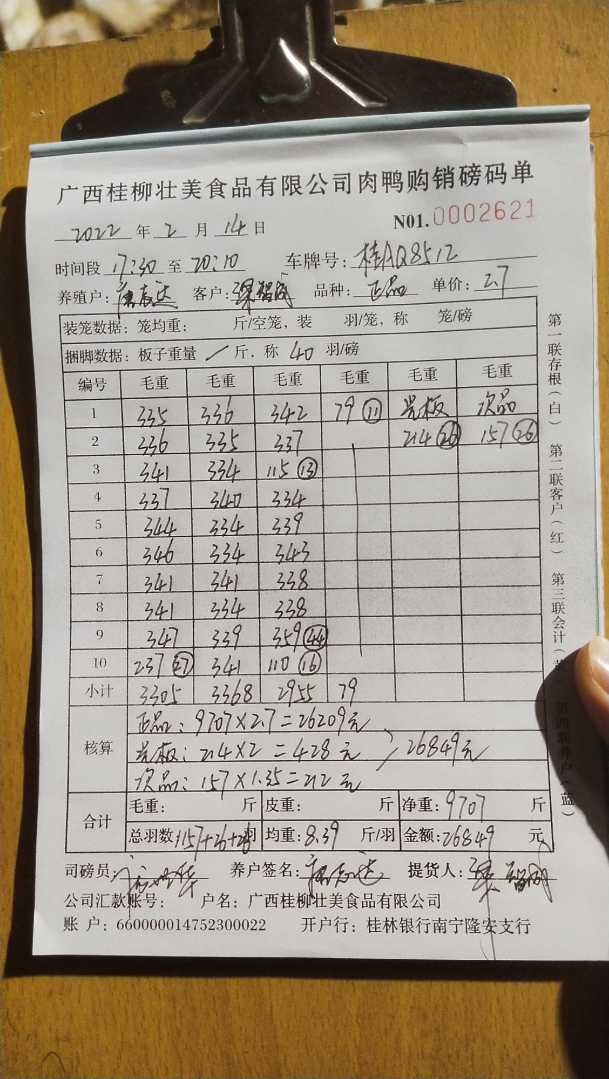 广西桂柳壮美食品有限公司肉鸭购销磅码单
2022 年 2 月 14 日 N01.0002621
时间段 17:30 至 20:10 车牌号: 桂AQ8512
养殖户: 客户: 品种: 正品 单价: 2.7
装笼数据: 笼均重: 斤/空笼, 装 羽/笼, 称 笼/磅
捆脚数据: 板子重量 / 斤, 称 40 羽/磅
编号 毛重 毛重 毛重 毛重 毛重 毛重
1 335 336 342 79 ⑪ 光板 次品
2 336 335 337 214 ㉖ 157 ㉖
3 341 334 115 ⑬
4 337 340 334
5 344 334 339
6 346 334 343
7 341 341 338
8 341 334 338
9 347 339 359 ㊹
10 237 ㉗ 341 110 ⑯
小计 3305 3368 2955 79
核算
正品: 9707×2.7=26209元
光板: 214×2=428元 26849元
次品: 157×1.35=212元
合计
毛重: 斤 皮重: 斤 净重: 9707 斤
总羽数 1157+26+26 羽 均重: 8.39 斤/羽 金额: 26849 元
司磅员: 养户签名: 提货人:
公司汇款账号: 户名: 广西桂柳壮美食品有限公司
账 户: 660000014752300022 开户行: 桂林银行南宁隆安支行
第一联存根(白) 第二联客户(红) 第三联会计( 第四联养户(蓝)